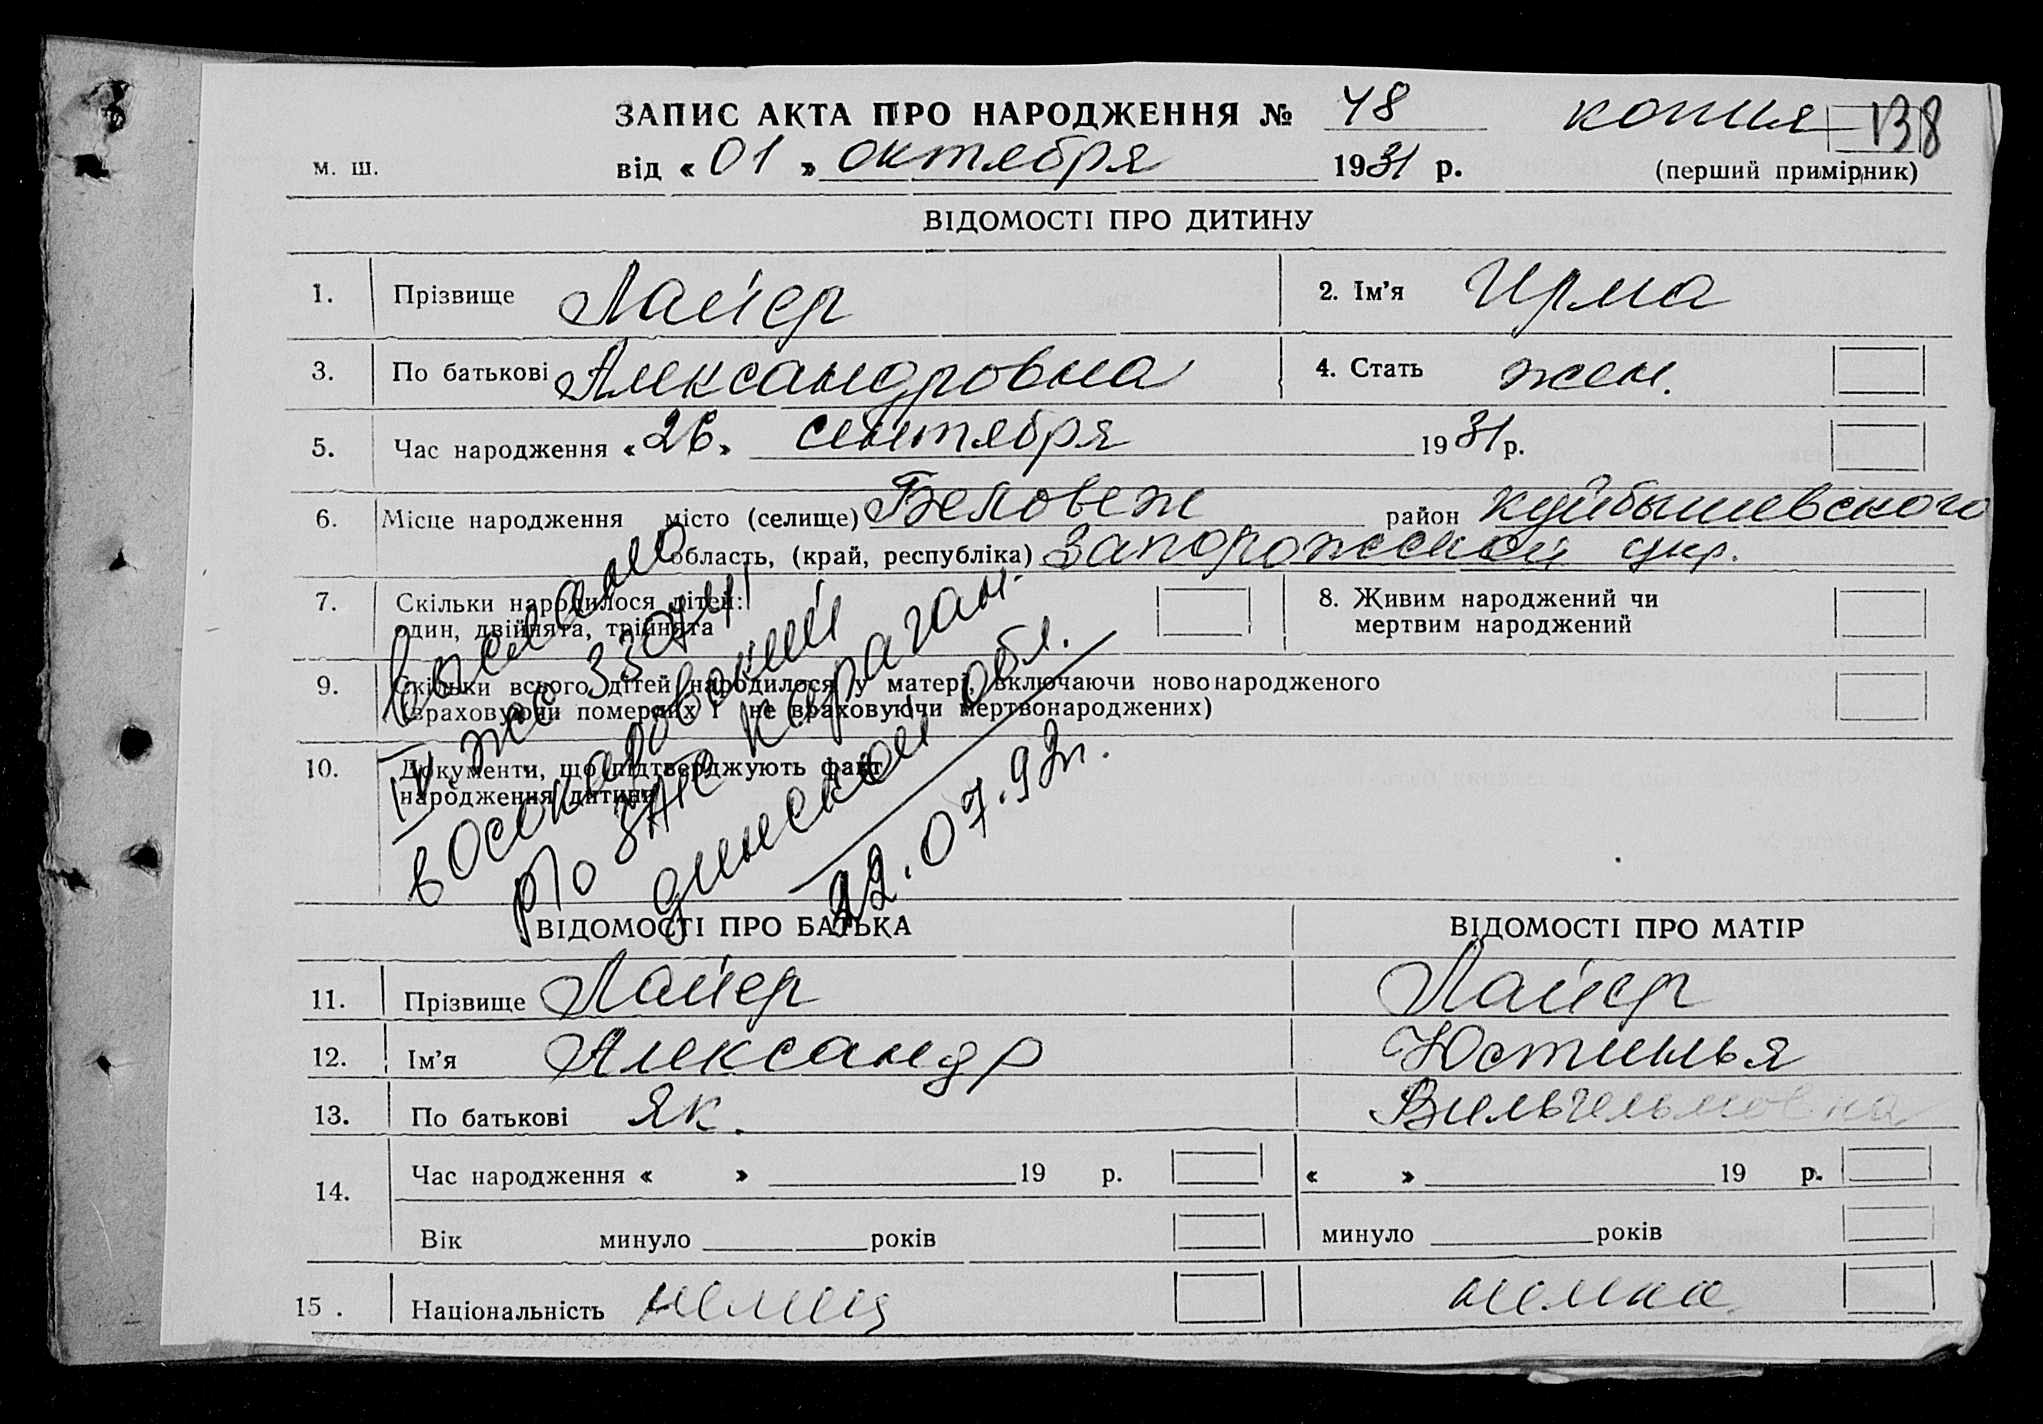 ЗАПИС АКТА ПРО НАРОДЖЕННЯ № 48 копия 138
м. ш. від «01» октября 1931 р. (перший примірник)
ВІДОМОСТІ ПРО ДИТИНУ
1. Прізвище Лайер 2. Ім'я Ирма
3. По батькові Александровна 4. Стать жен.
5. Час народження «26» сентября 1931 р.
6. Місце народження місто (селище) Беловеж район Куйбышевского
область, (край, республіка) Запорожской укр.
7. Скільки народилося дітей: 8. Живим народжений чи
один, двійнята, трійнята мертвим народжений
9. Скільки всього дітей народилося у матері, включаючи новонародженого
(враховуючи померлих і не враховуючи мертвонароджених)
10. Документи, що підтверджують факт
народження дитини
выслано
IV жс 330741
в Осакаровский
р/о ЗАГС Караган-
динской обл.
22.07.92г.
ВІДОМОСТІ ПРО БАТЬКА ВІДОМОСТІ ПРО МАТІР
11. Прізвище Лайер Лайер
12. Ім'я Александр Юстинья
13. По батькові Як. Вильгельмовна
14. Час народження « » 19 р. « » 19 р.
Вік минуло років минуло років
15. Національність немец немка